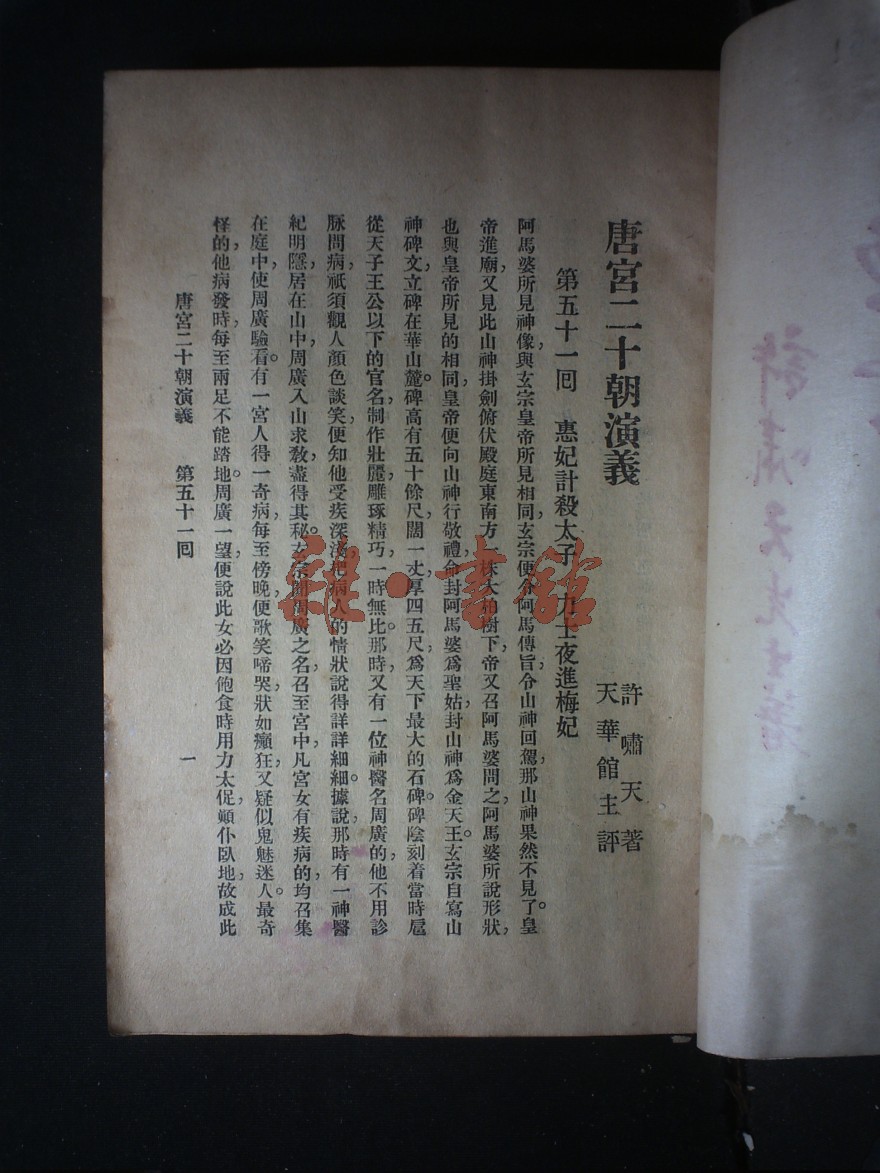 唐宮二十朝演義
許嘯天著
天華館主評
第五十一回 惠妃計殺太子 力士夜進梅妃
阿馬婆所見神像，與玄宗皇帝所見相同，玄宗便令阿馬傳旨，令山神回駕，那山神果然不見了。皇
帝進廟，又見此山神掛劍俯伏殿庭東南方一株大柏樹下，帝又召阿馬婆問之，阿馬婆所說形狀，
也與皇帝所見的相同，皇帝便向山神行敬禮，命封阿馬婆爲聖姑，封山神爲金天王。玄宗自寫山
神碑文，立碑在華山麓。碑高有五十餘尺，闊一丈，厚四五尺，爲天下最大的石碑。碑陰刻着當時扈
從天子王公以下的官名，制作壯麗，雕琢精巧，一時無比。那時又有一位神醫名周廣的，他不用診
脉問病，祇須觀人顏色談笑，便知他受疾深淺，把病人的情狀說得詳詳細細。據說，那時有一神醫
紀明，隱居在山中，周廣入山求教，盡得其秘。玄宗聞周廣之名，召至宮中，凡宮女有疾病的，均召集
在庭中，使周廣驗看。有一宮人得一奇病，每至傍晚，便歌笑啼哭，狀如癲狂，又疑似鬼魅迷人。最奇
怪的，他病發時，每至兩足不能踏地。周廣一望，便說此女必因飽食時用力太促，顚仆臥地，故成此
唐宮二十朝演義 第五十一回 一
雜·書館
許嘯天先生著